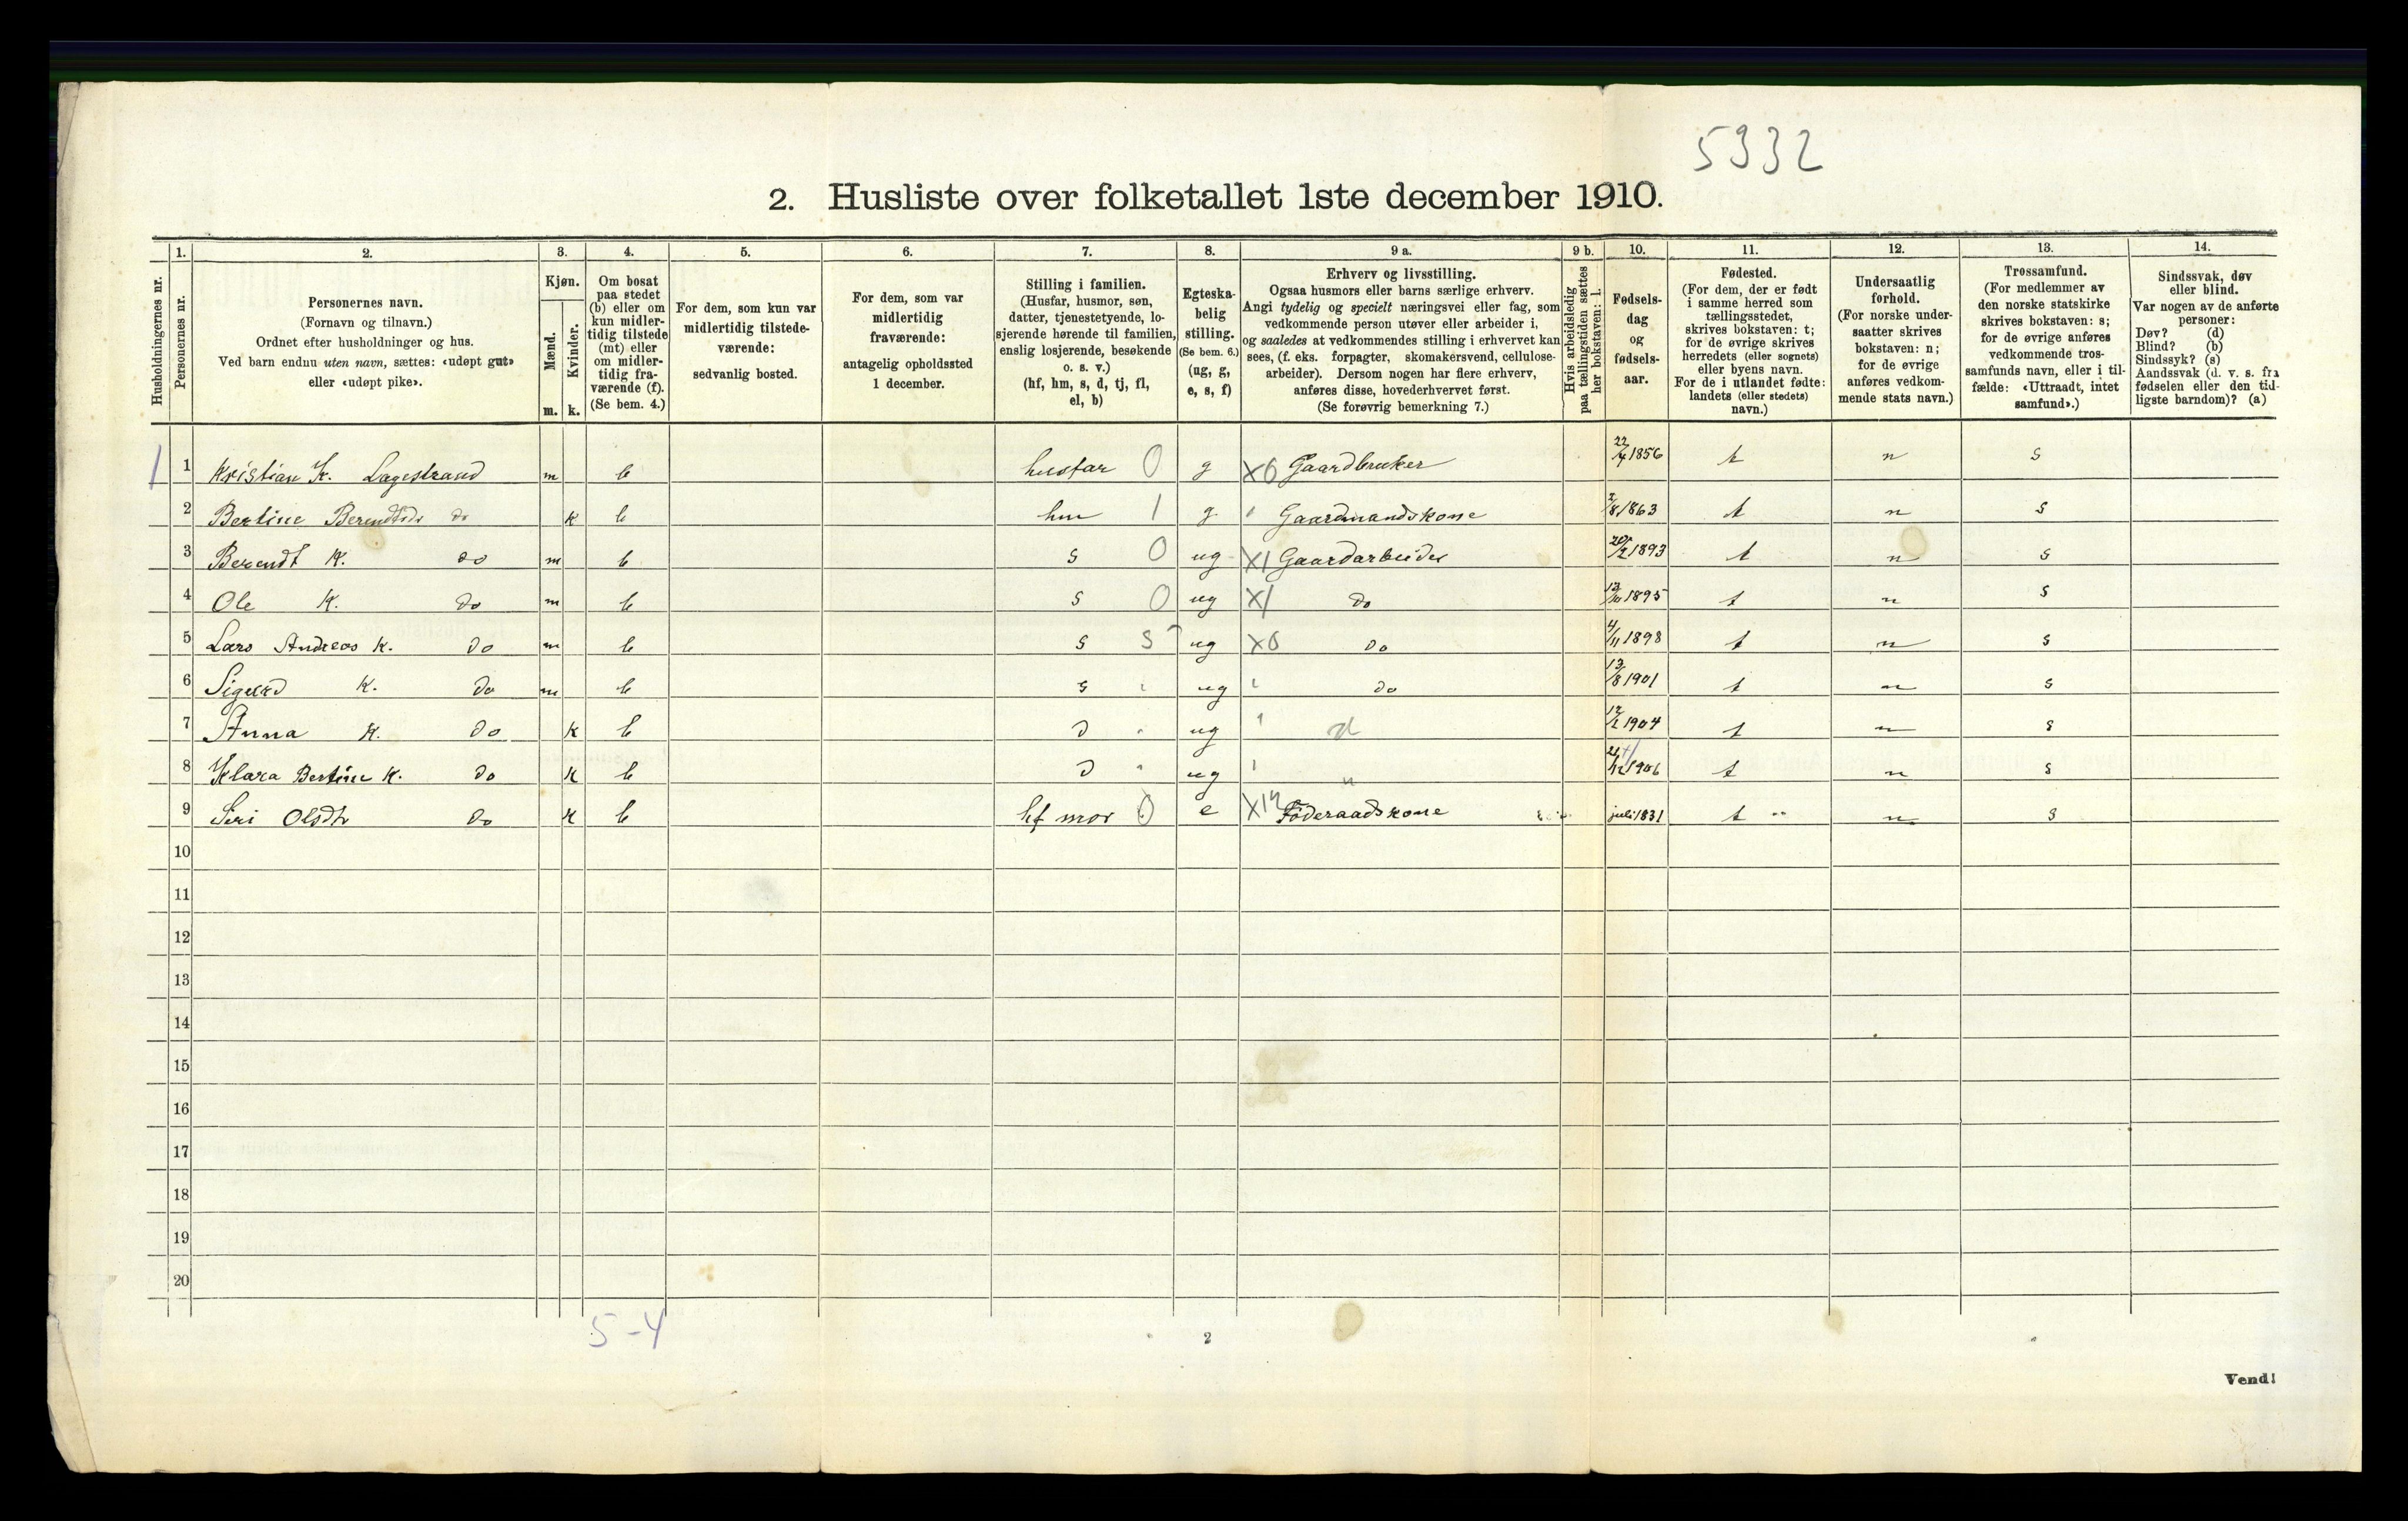 5932
2. Husliste over folketallet 1ste december 1910.
Husholdningernes nr.
1.
Personernes nr.
2.
Personernes navn.
(Fornavn og tilnavn.)
Ordnet efter husholdninger og hus.
Ved barn endnu uten navn, sættes: «udøpt gut»
eller «udøpt pike».
3.
Kjøn.
Mænd.
Kvinder.
m. k.
4.
Om bosat
paa stedet
(b) eller om
kun midler-
tidig tilstede
(mt) eller
om midler-
tidig fra-
værende (f).
(Se bem. 4.)
5.
For dem, som kun var
midlertidig tilstede-
værende:
sedvanlig bosted.
6.
For dem, som var
midlertidig
fraværende:
antagelig opholdssted
1 december.
7.
Stilling i familien.
(Husfar, husmor, søn,
datter, tjenestetyende, lo-
sjerende hørende til familien,
enslig losjerende, besøkende
o. s. v.)
(hf, hm, s, d, tj, fl,
el, b)
8.
Egteska-
belig
stilling.
(Se bem. 6.)
(ug, g,
e, s, f)
9 a.
Erhverv og livsstilling.
Ogsaa husmors eller barns særlige erhverv.
Angi tydelig og specielt næringsvei eller fag, som
vedkommende person utøver eller arbeider i,
og saaledes at vedkommendes stilling i erhvervet kan
sees, (f. eks. forpagter, skomakersvend, cellulose-
arbeider). Dersom nogen har flere erhverv,
anføres disse, hovederhvervet først.
(Se forøvrig bemerkning 7.)
9 b.
Hvis arbeidsledig
paa tællingstiden sættes
her bokstaven: l.
10.
Fødsels-
dag
og
fødsels-
aar.
11.
Fødested.
(For dem, der er født
i samme herred som
tællingsstedet,
skrives bokstaven: t;
for de øvrige skrives
herredets (eller sognets)
eller byens navn.
For de i utlandet fødte:
landets (eller stedets)
navn.)
12.
Undersaatlig
forhold.
(For norske under-
saatter skrives
bokstaven: n;
for de øvrige
anføres vedkom-
mende stats navn.)
13.
Trossamfund.
(For medlemmer av
den norske statskirke
skrives bokstaven: s;
for de øvrige anføres
vedkommende tros-
samfunds navn, eller i til-
fælde: «Uttraadt, intet
samfund».)
14.
Sindssvak, døv
eller blind.
Var nogen av de anførte
personer:
Døv? (d)
Blind? (b)
Sindssyk? (s)
Aandssvak (d. v. s. fra
fødselen eller den tid-
ligste barndom)? (a)
1 1 Kristian K. Lagestrand m b husfar 0 g X6 Gaardbruker 22/4 1856 t n s
2 Bertine Berendtsdr do k b hm 1 g Gaardmandskone 2/8 1863 t n s
3 Berendt K. do m b s 0 ug X1 Gaardarbeider 20/2 1893 t n s
4 Ole K. do m b s 0 ug X1 do 1895 t n s
5 Lars Andreas K. do m b s S ug X6 do 4/11 1898 t n s
6 Sigurd K. do m b s ug do 13/8 1901 t n s
7 Anna K. do k b d ug d 12/2 1904 t n s
8 Klara Bertine K. do k b d ug " 1906 t n s
9 Siri Olsdtr do k b hf mor 0 e Føderaadskone juli 1831 t n s
10
11
12
13
14
15
16
17
18
19
20
5-4
2
Vend!